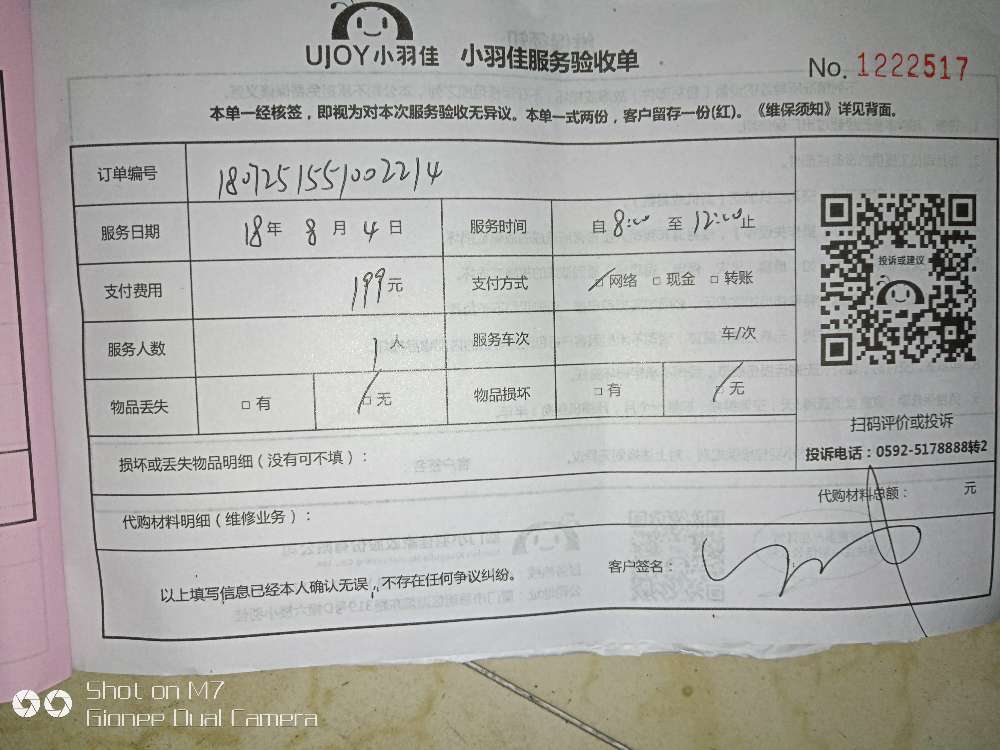 UJOY小羽佳 小羽佳服务验收单
No. 1222517
本单一经核签，即视为对本次服务验收无异议。本单一式两份，客户留存一份(红)。《维保须知》详见背面。
订单编号 1807251551002214
服务日期 18年 8月 4日 服务时间 自 8:00 至 12:00 止
投诉或建议
支付费用 199元 支付方式 □网络 □现金 □转账
服务人数 1人 服务车次 车/次
物品丢失 □有 □无 物品损坏 □有 □无
扫码评价或投诉
投诉电话：0592-5178888转2
损坏或丢失物品明细（没有可不填）：
代购材料明细（维修业务）： 代购材料总额： 元
以上填写信息已经本人确认无误，不存在任何争议纠纷。 客户签名：
Shot on M7
Gionee Dual Camera